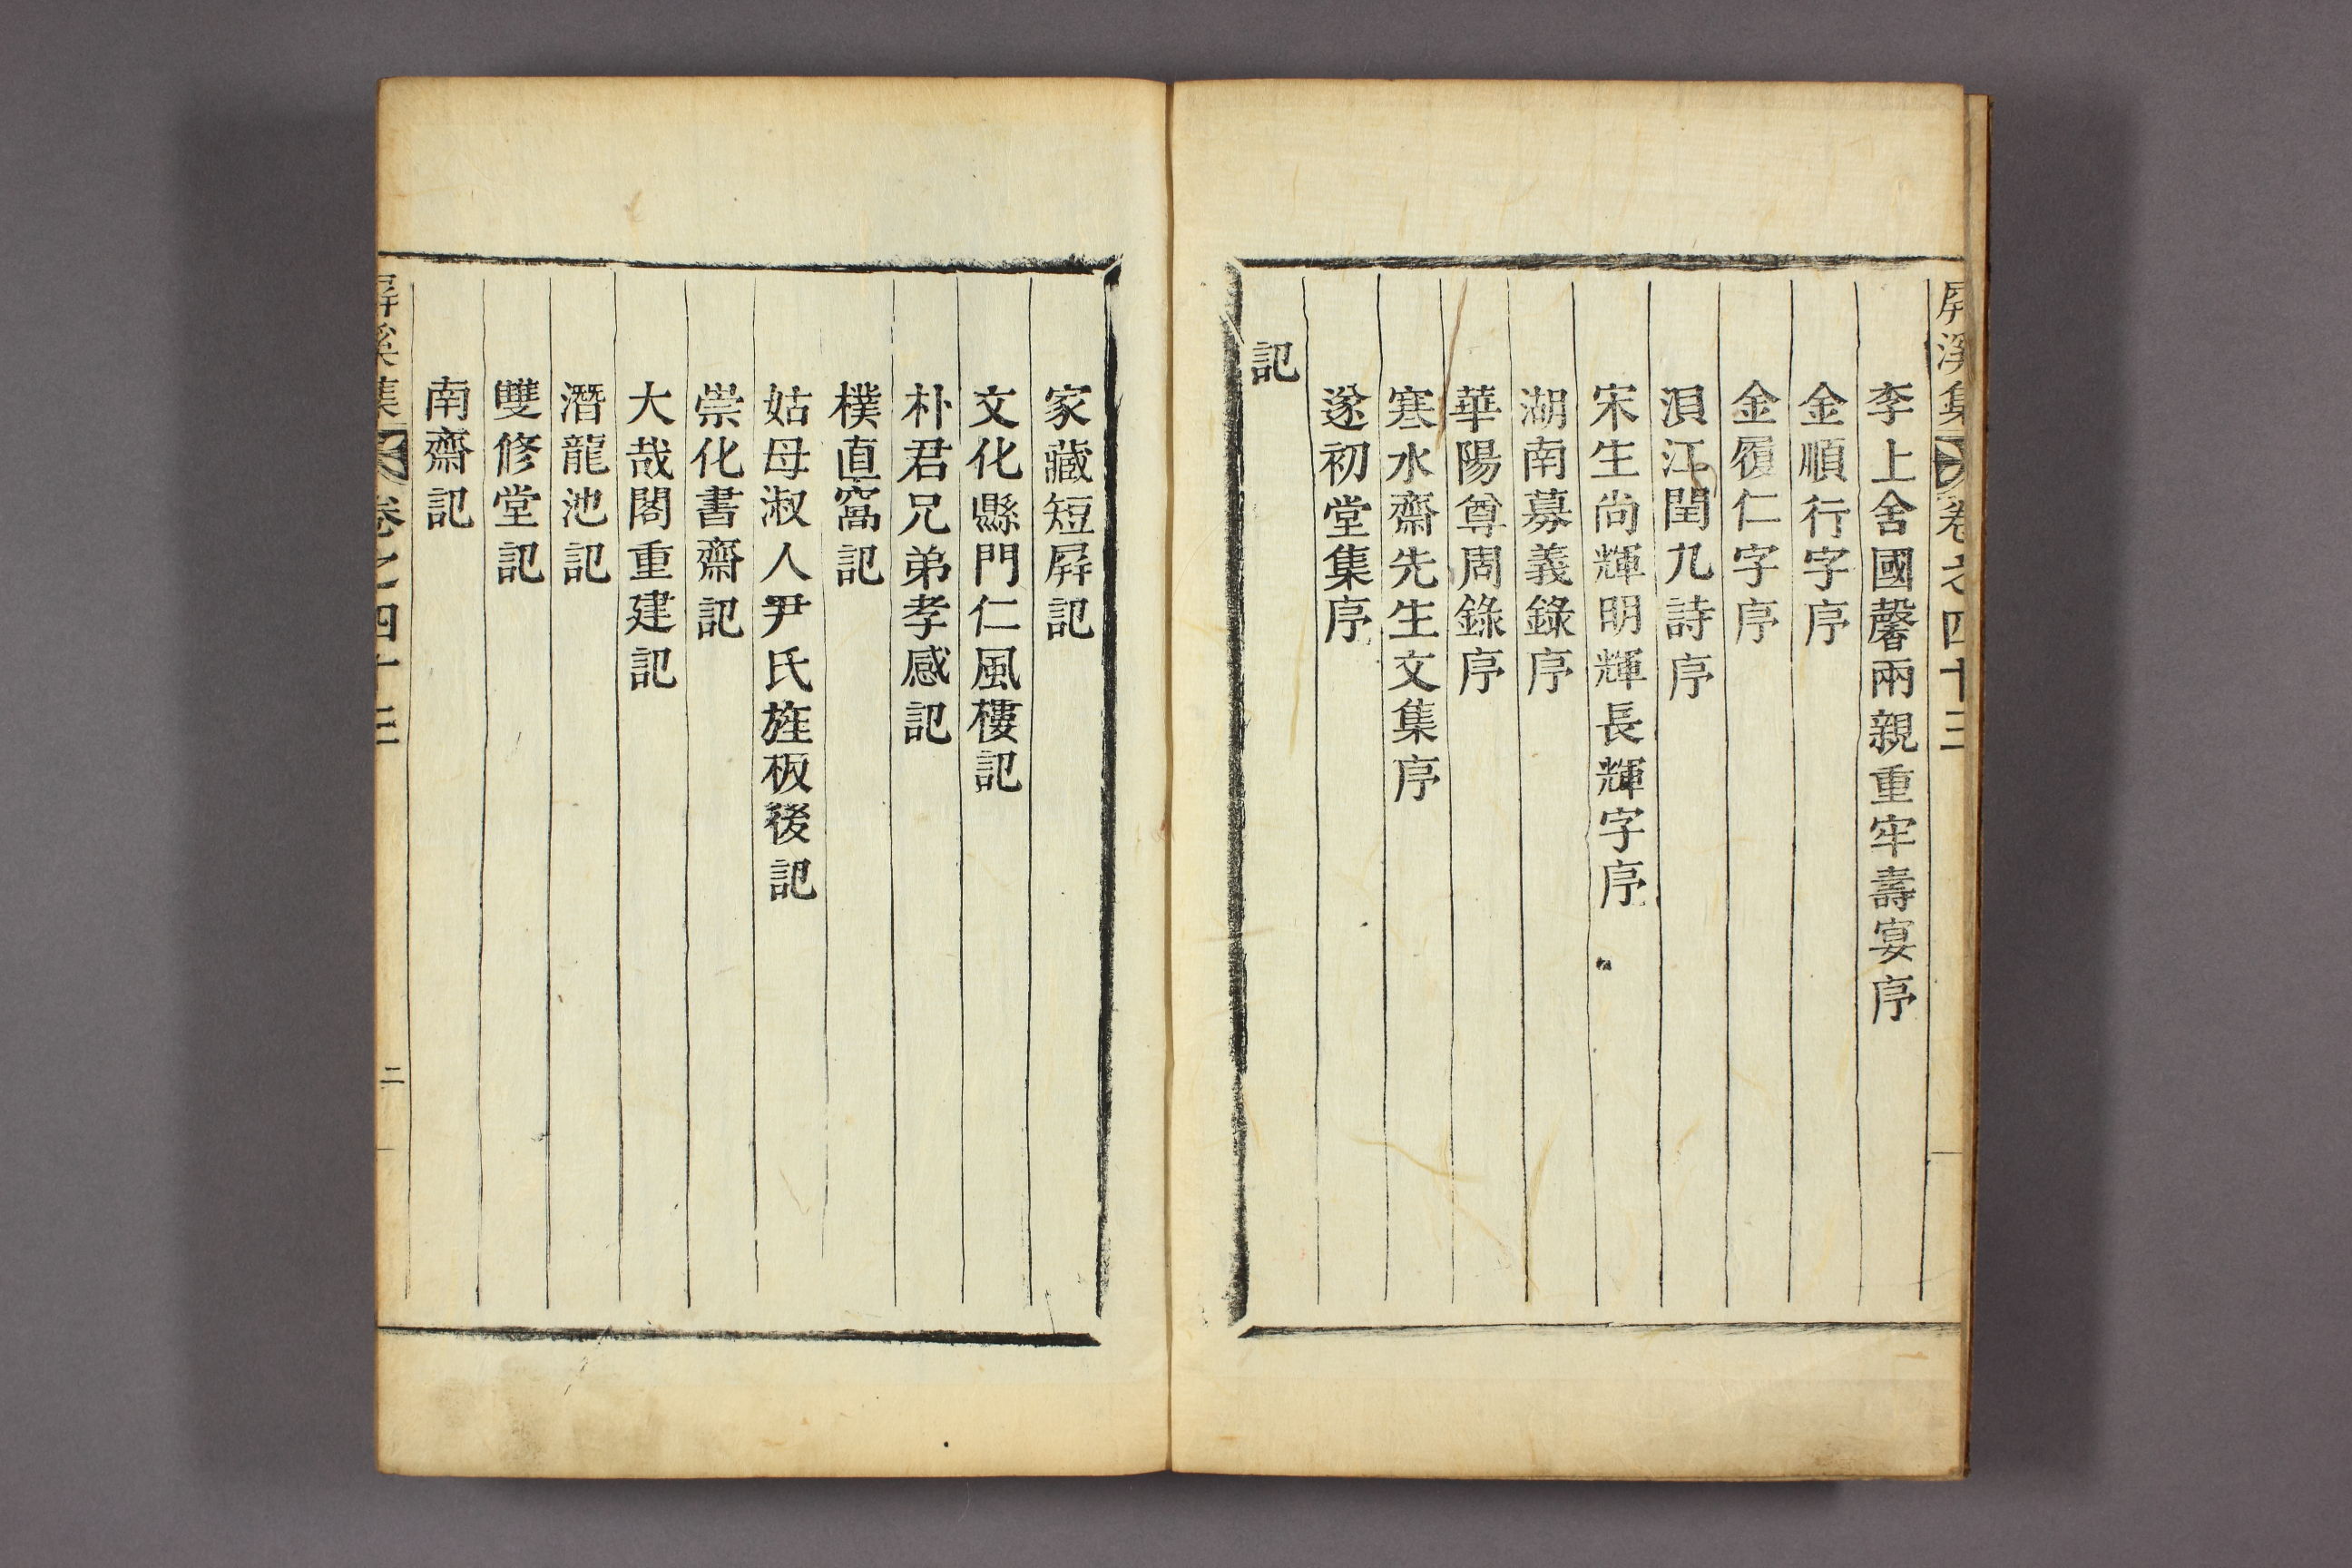 屏溪集 卷之四十三
李上舍國馨兩親重牢壽宴序
金順行字序
金履仁字序
浿江閏九詩序
宋生尚輝明輝長輝字序
湖南募義錄序
華陽尊周錄序
寒水齋先生文集序
遂初堂集序
記
家藏短屛記
文化縣門仁風樓記
朴君兄弟孝感記
樸直窩記
姑母淑人尹氏旌板後記
崇化書齋記
大哉閣重建記
潛龍池記
雙修堂記
南齋記
屏溪集 卷之四十三 二